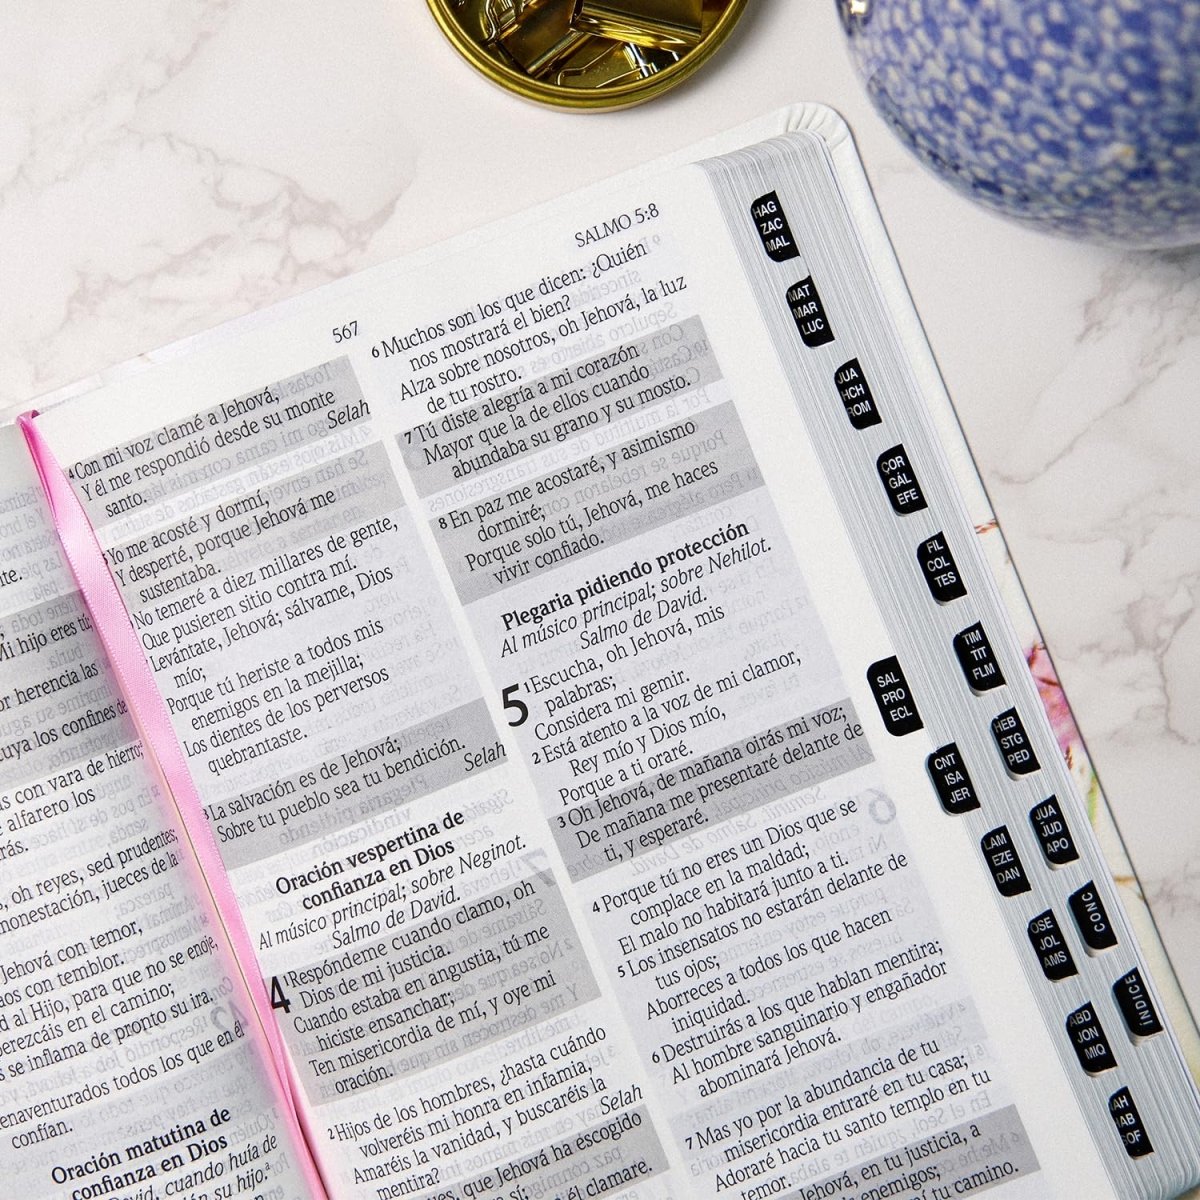 te.
Mi hijo eres tú;
or herencia las
tuya los confines de
ás con vara de hierro;
e alfarero los
rás.
, oh reyes, sed prudentes;
monestación, jueces de la
Jehová con temor,
eos con temblor.
d al Hijo, para que no se enoje,
perezcáis en el camino;
s se inflama de pronto su ira.
enaventurados todos los que en él
confían.
Oración matutina de
confianza en Dios
David, cuando huía de
su hijo.
567
4 Con mi voz clamé a Jehová,
Y él me respondió desde su monte
santo. Selah
5 Yo me acosté y dormí,
Y desperté, porque Jehová me
sustentaba.
No temeré a diez millares de gente,
Que pusieren sitio contra mí.
Levántate, Jehová; sálvame, Dios
mío;
Porque tú heriste a todos mis
enemigos en la mejilla;
Los dientes de los perversos
quebrantaste.
La salvación es de Jehová;
Sobre tu pueblo sea tu bendición.
Selah
Oración vespertina de
confianza en Dios
Al músico principal; sobre Neginot.
Salmo de David.
4 Respóndeme cuando clamo, oh
Dios de mi justicia.
Cuando estaba en angustia, tú me
hiciste ensanchar;
Ten misericordia de mí, y oye mi
oración.
2 Hijos de los hombres, ¿hasta cuándo
volveréis mi honra en infamia,
Amaréis la vanidad, y buscaréis la
mentira? Selah
es, que Jehová ha escogido
sí;
él clamare.
SALMO 5:8
6 Muchos son los que dicen: ¿Quién
nos mostrará el bien?
Alza sobre nosotros, oh Jehová, la luz
de tu rostro.
7 Tú diste alegría a mi corazón
Mayor que la de ellos cuando
abundaba su grano y su mosto.
8 En paz me acostaré, y asimismo
dormiré;
Porque solo tú, Jehová, me haces
vivir confiado.
Plegaria pidiendo protección
Al músico principal; sobre Nehilot.
Salmo de David.
5 1 Escucha, oh Jehová, mis
palabras;
Considera mi gemir.
2 Está atento a la voz de mi clamor,
Rey mío y Dios mío,
Porque a ti oraré.
3 Oh Jehová, de mañana oirás mi voz;
De mañana me presentaré delante de
ti, y esperaré.
4 Porque tú no eres un Dios que se
complace en la maldad;
El malo no habitará junto a ti.
5 Los insensatos no estarán delante de
tus ojos;
Aborreces a todos los que hacen
iniquidad.
6 Destruirás a los que hablan mentira;
Al hombre sanguinario y engañador
abominará Jehová.
7 Mas yo por la abundancia de tu
misericordia entraré en tu casa;
Adoraré hacia tu santo templo en tu
temor.
Jehová, en tu justicia, a
enemigos;
mi camino.
HAG
ZAC
MAL
MAT
MAR
LUC
JUA
HCH
ROM
COR
GÁL
EFE
FIL
COL
TES
TIM
TIT
FLM
HEB
STG
PED
JUA
JUD
APO
CONC
ÍNDICE
SAL
PRO
ECL
CNT
ISA
JER
LAM
EZE
DAN
OSE
JOL
AMS
ABD
JON
MIQ
AH
AB
OF